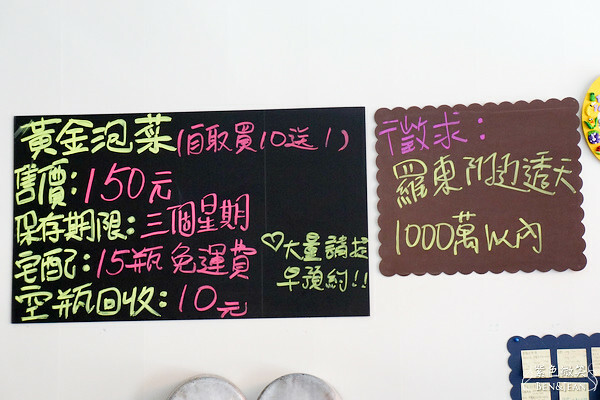 黃金泡菜(自取買10送1)
售價:150元
保存期限:三個星期
宅配:15瓶免運費
空瓶回收:10元
♡大量請提
早預約!!
徵求:
羅東附近透天
1000萬以內
紫色微笑
BEN&JEAN